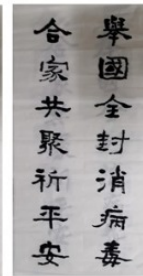 舉國全封消病毒
合家共聚祈平安